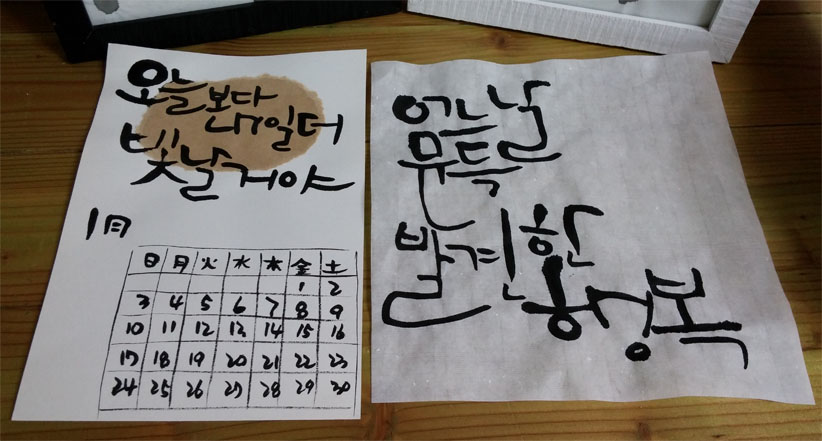 오늘보다
내일 더
빛날 거야
1月
日 月 火 水 木 金 土
1 2
3 4 5 6 7 8 9
10 11 12 13 14 15 16
17 18 19 20 21 22 23
24 25 26 27 28 29 30
어느날
문득
발견한
행복